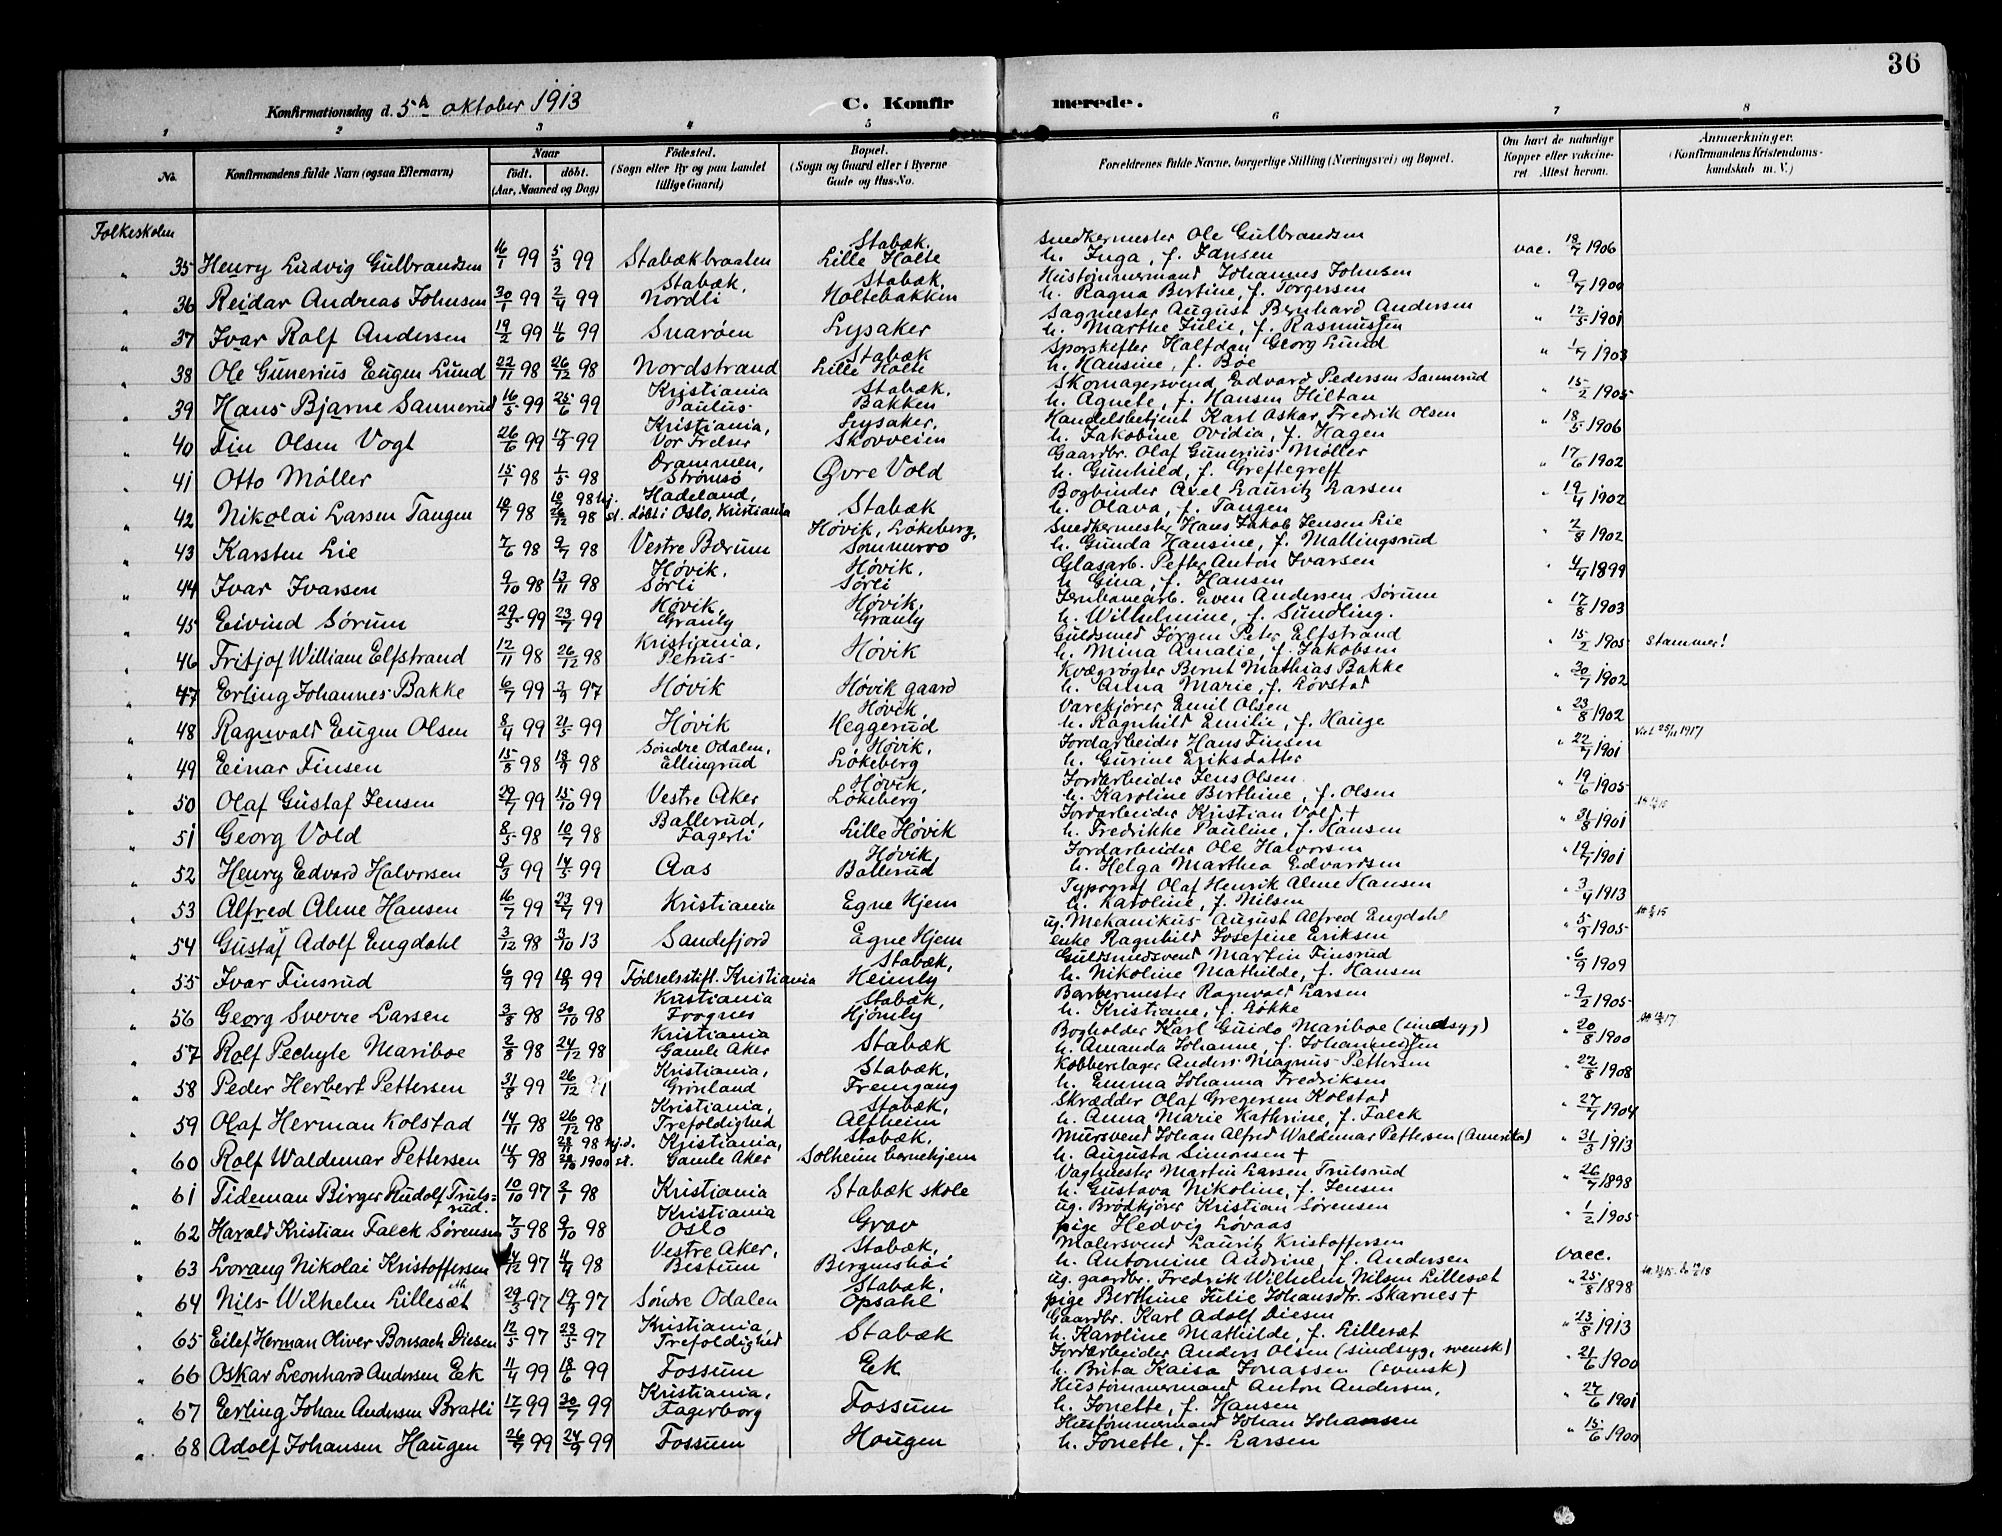 36
Konfirmationsdag d. 5h oktober 1913 C. Konfirmerede.
1 2 3 4 5 6 7 8
No. Konfirmandens fulde Navn (ogsaa Efternavn) Naar født. døbt. (Aar, Maaned og Dag) Fødested. (Sogn eller By og paa Landet tillige Gaard) Bopæl. (Sogn og Gaard eller i Byerne Gade og Hus-No. Forældrenes fulde Navne, borgerlige Stilling (Næringsvei) og Bopæl. Om havt de naturlige Kopper eller vakcineret Attest herom. Anmærkninger. (Konfirmandens Kristendomskundskab m. V.)
Folkeskolen
" 35 Henry Ludvig Gulbrandsen 16/1 99 5/3 99 Stabækbraaten Stabæk. Lille Holte Snedkermester Ole Gulbrandsen h. Inga, f. Jansen vac. 18/7 1906
" 36 Reidar Andreas Johnsen 30/1 99 2/4 99 Stabæk, Nordli Stabæk. Holtebakken Hustømmermand Johannes Johnsen h. Ragna Bertine, f. Torgersen " 9/7 1900
" 37 Ivar Rolf Andersen 19/2 99 4/6 99 Snarøen Lysaker Sagmester August Bernhard Andersen h. Marthe Julie, f. Rasmussen " 12/5 1901
" 38 Ole Gunerius Eugen Lund 22/11 98 26/12 98 Nordstrand Stabæk Lille Holte Sporskifter Halfdan Georg Lund h. Hansine, f. Bøe " 1/7 1903
" 39 Hans Bjarne Sannerud 16/5 99 25/6 99 Kristiania Paulus Stabæk. Bakken Skomagersvend Edvard Pedersen Sannerud h. Agnete, f. Hansen Hiltan " 15/2 1905
" 40 Fin Olsen Vogt 26/6 99 17/9 99 Kristiania, Vor Frelser Lysaker, Skovveien Handelsbetjent Karl Oskar Fredrik Olsen h. Jakobine Ovidia, f. Hagen " 18/5 1906
" 41 Otto Møller 15/1 98 1/5 98 Drammen, Strømsø Øvre Vold Gaardbr. Olaf Gunerius Møller h. Gunhild, f. Greftegreff " 17/6 1902
" 42 Nikolai Larsen Tangen 10/7 98 10/7 98 hj. 26/12 98 st. Hadeland, døbt i Oslo, Kristiania Stabæk Bogbinder Axel Lauritz Larsen h. Olava, f. Tangen " 19/4 1902
" 43 Karsten Lie 7/6 98 9/7 98 Vestre Bærum Høvik, Løkeberg, Sommerro Snedkermester Hans Jakob Jensen Lie h. Gunda Hansine, f. Mallingsrud " 2/8 1902
" 44 Ivar Ivarsen 9/10 98 13/11 98 Høvik, Sørli Høvik, Sørli Glasarb. Petter Anton Ivarsen h. Gina, f. Hansen " 4/4 1899
" 45 Eivind Sørum 29/5 99 23/7 99 Høvik, Granly Høvik, Granly Jernbanearb. Even Andersen Sørum h. Wilhelmine, f. Sundling. " 17/8 1903
" 46 Fritjof William Elfstrand 12/11 98 26/12 98 Kristiania, Petrus Høvik Guldsmed Jørgen Peter Elfstrand h. Mina Amalie, f. Jakobsen " 15/2 1905 Stammer!
" 47 Erling Johannes Bakke 6/7 99 3/9 97 Høvik Høvik gaard Kvægrøgter Bernt Mathias Bakke h. Anna Marie, f. Løvstad " 30/7 1902
" 48 Ragnvald Eugen Olsen 8/4 99 21/5 99 Høvik Høvik Heggerud Varekjører Emil Olsen h. Ragnhild Emilie, f. Hauge " 23/8 1902
" 49 Einar Finsen 15/8 98 18/9 98 Søndre Odalen, Ellingrud Høvik, Løkeberg Jordarbeider Hans Finsen h. Gurine Eriksdatter " 22/7 1901 25/11 1917
" 50 Olaf Gustaf Jensen 29/7 99 15/10 99 Vestre Aker Høvik, Løkeberg Jordarbeider Jens Olsen h. Karoline Berthine, f. Olsen " 19/6 1905
" 51 Georg Vold 8/5 98 10/7 98 Ballerud, Fagerli Lille Høvik Jordarbeider Kristian Vold † h. Fredrikke Pauline, f. Hansen " 31/8 1901
" 52 Henry Edvard Halvorsen 9/3 99 14/5 99 Aas Høvik Ballerud Jordarbeider Ole Halvorsen h. Helga Marthea Edvardsen " 19/7 1901
" 53 Alfred Alme Hansen 16/7 99 23/7 99 Kristiania Egne Hjem Typograf Olaf Henrik Alme Hansen h. Karoline, f. Nilsen " 3/4 1913
" 54 Gustaf Adolf Engdahl 3/12 98 3/10 13 Sandefjord Egne Hjem ug. Mekanikus August Alfred Engdahl enke Ragnhild Josefine Eriksen " 5/9 1905
" 55 Ivar Finsrud 6/9 99 10/9 99 Fødselsstift. Kristiania Stabæk, Heimly Guldsmedsvend Martin Finsrud h. Nikoline Mathilde, f. Hansen " 6/9 1909
" 56 Georg Sverre Larsen 3/8 98 30/10 98 Kristiania Frogner Stabæk, Hjemly Barbermester Ragnvald Larsen h. Kristiane, f. Løkke " 9/2 1905
" 57 Rolf Pechyle Mariboe 2/8 98 24/12 98 Kristiania Gamle Aker Stabæk Bogholder Karl Guido Mariboe (sindsyg) h. Amanda Johanne, f. Johannessen " 20/8 1900
" 58 Peder Herbert Pettersen 31/8 99 26/12 Kristiania, Grønland Stabæk, Fremgang Kobberslager Anders Magnus Pettersen h. Emma Johanna Fredriksen " 22/8 1908
" 59 Olaf Herman Kolstad 14/11 98 26/12 98 Kristiania, Trefoldighed Stabæk, Alfheim Skrædder Olaf Gregersen Kolstad h. Anna Marie Kathrine, f. Falck " 27/7 1904
" 60 Rolf Waldemar Pettersen 14/9 98 28/11 98 hj.d. 28/10 1900 st. Kristiania, Gamle Aker Stabæk, Solheim barnehjem Mursvend Johan Alfred Waldemar Pettersen (Amerika) h. Augusta Simonsen † " 31/3 1913
" 61 Tideman Birger Rudolf Trulsrud. 10/10 97 2/1 98 Kristiania Stabæk skole Vagtmester Martin Larsen Trulsrud h. Gustava Nikoline, f. Jensen " 26/7 1898
" 62 Harald Kristian Falck Sørensen 7/3 98 9/10 98 Kristiania Oslo Grav ug. Brødkjører Kristian Sørensen pige Hedvig Løvaas " 1/2 1905
" 63 Lorang Nikolai Kristoffersen 14/12 97 4/9 98 Vestre Aker, Bestum Stabæk, Bergenshøi Malersvend Lauritz Kristoffersen h. Antonnine Andrine, f. Andersen vacc.
" 64 Nils Wilhelm Lillesæt 29/3 97 19/7 97 Søndre Odalen Stabæk, Opsahl ug. gaardbr. Fredrik Wilhelm Nilsen Lillesæt pige Berthine Julie Johansdtr. Skarnes † " 25/8 1898
" 65 Eilef Herman Oliver Bonsach Diesen 12/5 97 23/5 97 Kristiania, Trefoldighed Stabæk Gaardbr. Karl Adolf Diesen h. Karoline Mathilde, f. Lillesæt " 23/8 1913
" 66 Oskar Leonhard Andersen Ek 11/4 99 18/6 99 Fossum Ek Jordarbeider Anders Olsen (sindsyg, svensk) h. Brita Kaisa Jonassen (svensk) " 21/6 1900
" 67 Erling Johan Andersen Bratli 17/7 99 30/7 99 Kristiania, Fagerborg Fossum Hustømmermand Anton Andersen, h. Jonette, f. Hansen " 27/6 1901
" 68 Adolf Johansen Haugen 26/7 99 24/9 99 Fossum Hougen Hustømmermand Johan Johansen h. Jonette, f. Larsen " 15/6 1900